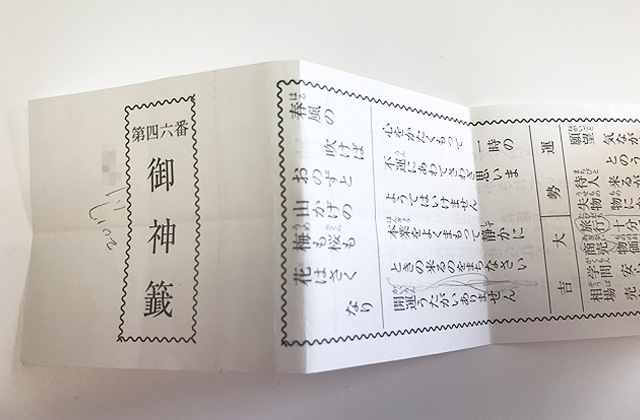 第四六番
御神籤
春風の
吹けば
おのずと
山かげの
梅も桜も
花はさく
なり
心をかたくもって一時の
不運にあわてさわぎ思いま
ようてはいけません
本業をよくまもって静かに
ときの来るのをまちなさい
開運うたがいありません
運勢
大吉
願望 気なが
とのう
待人 来るが
失物 物にか
旅行 十分
商売 物価
学問 安
相場 売